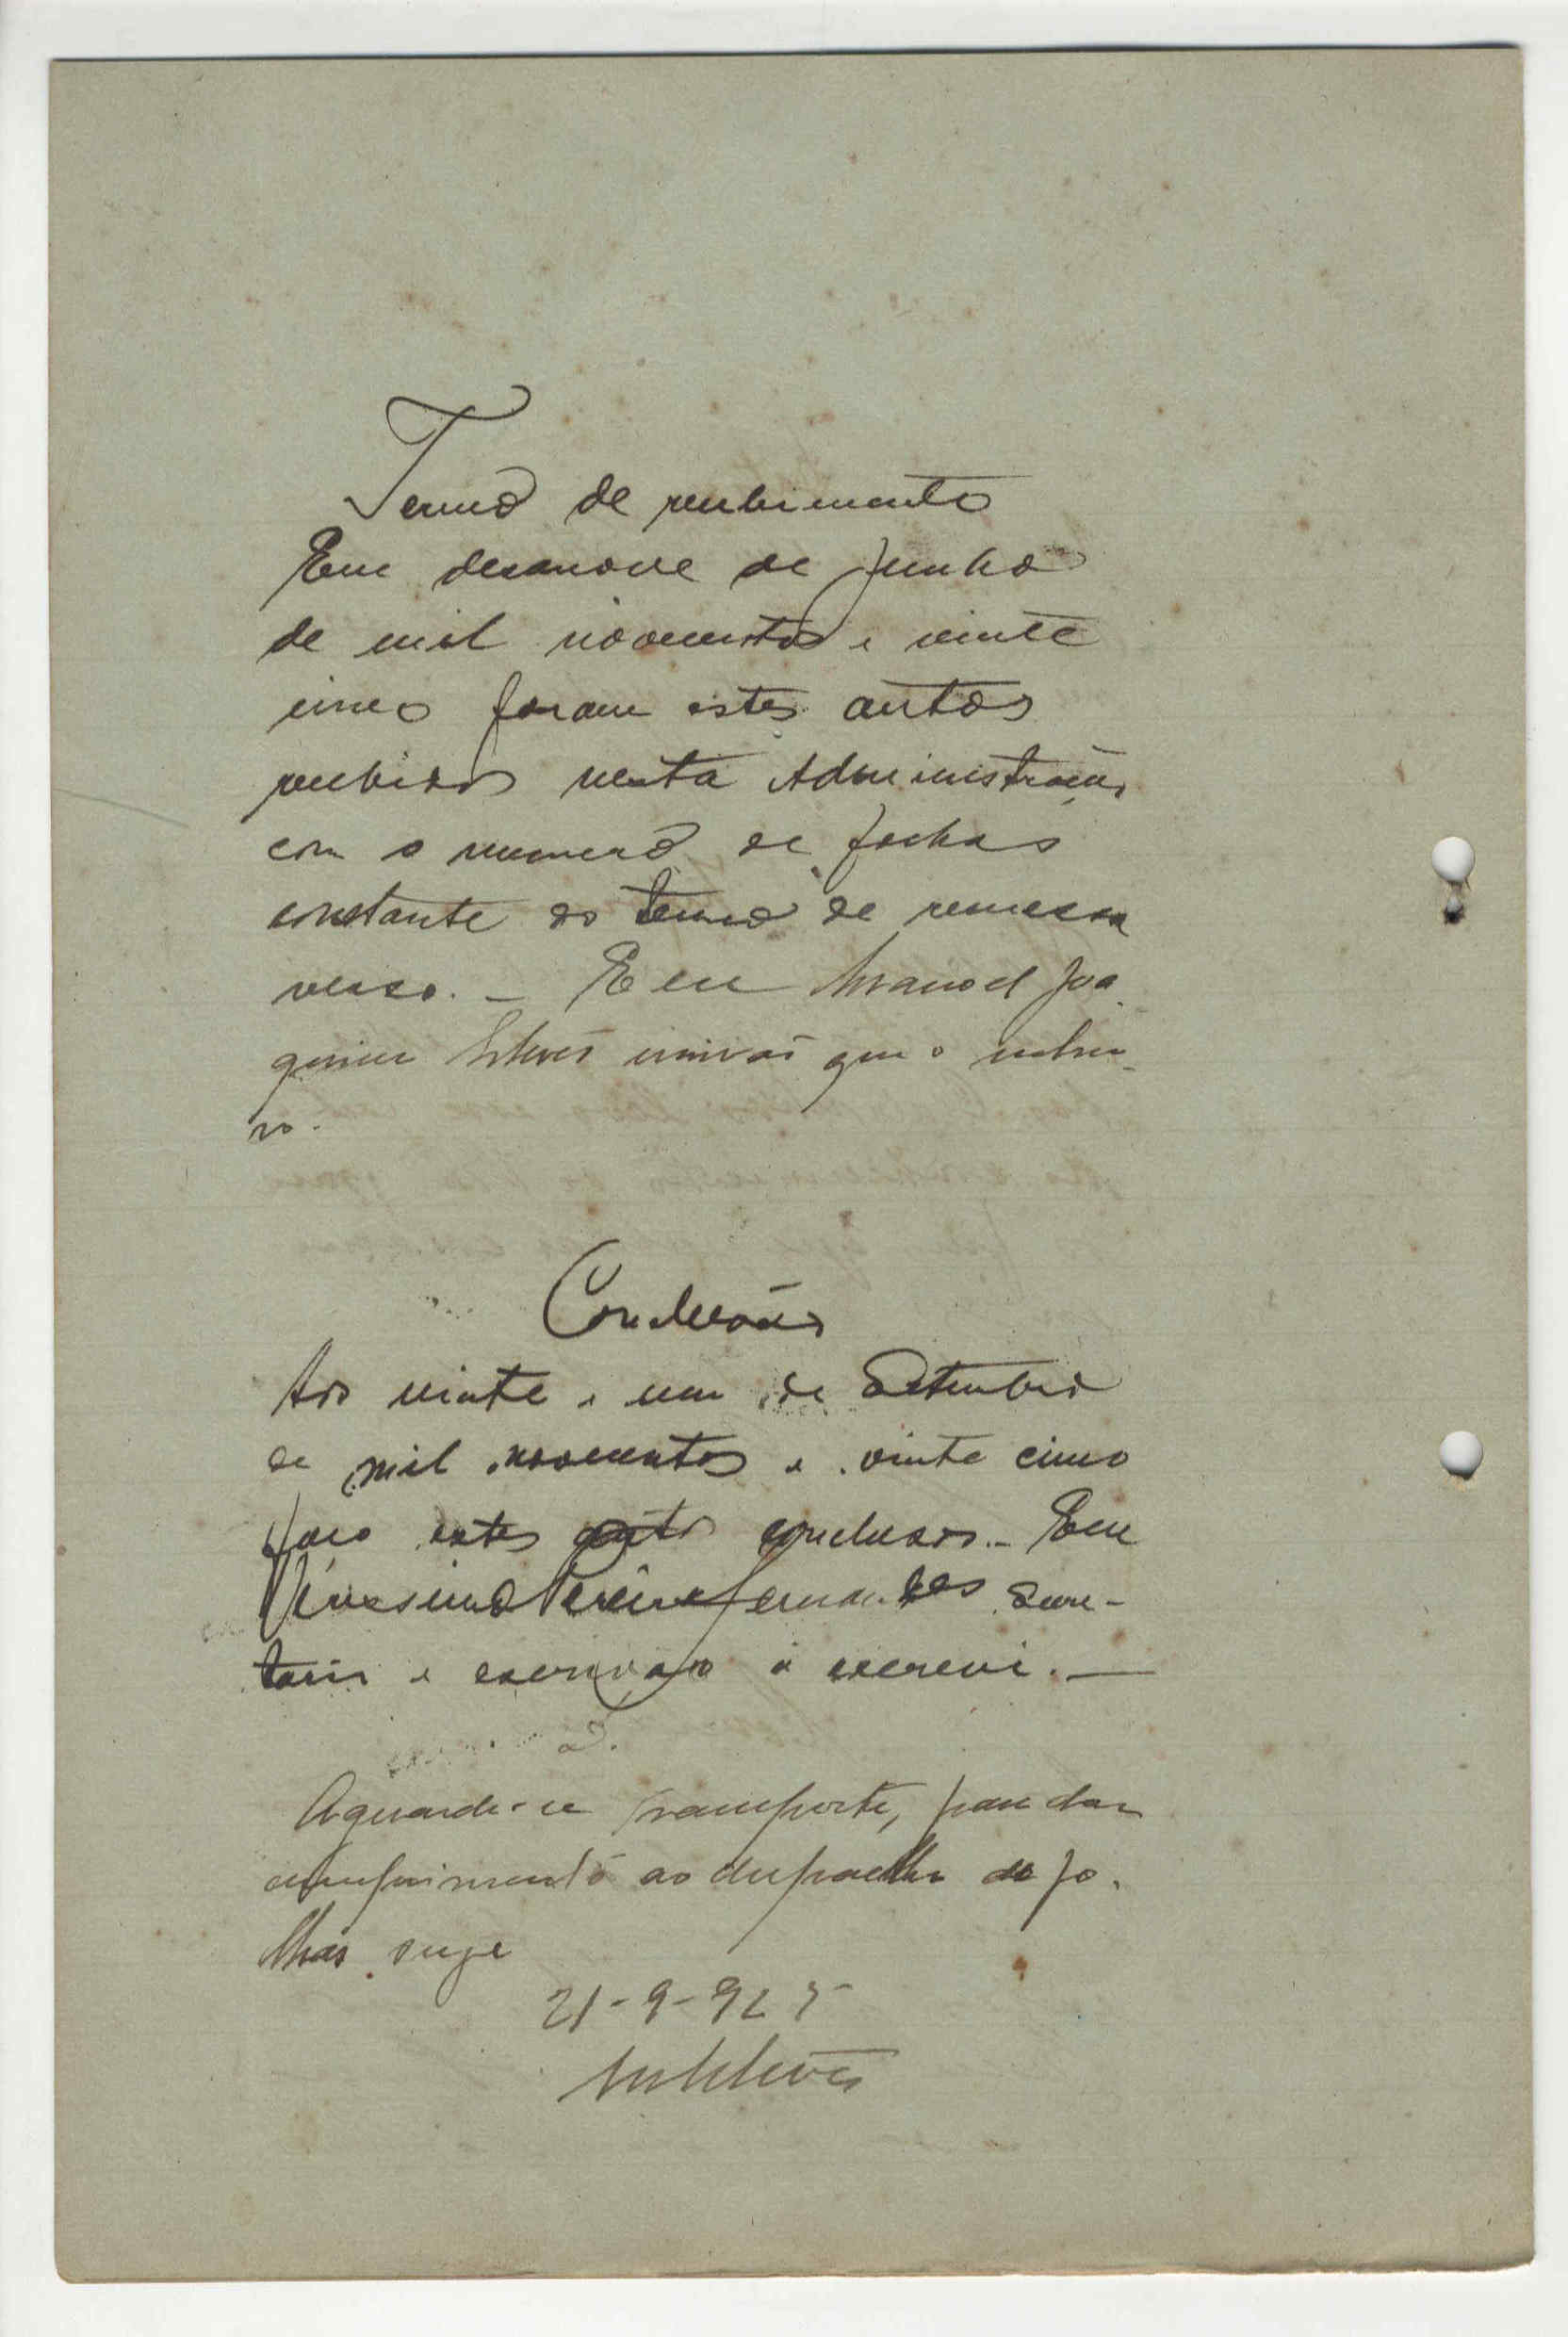 Termo de recebimento
Em desanove de Junho
de mil novecentos e vinte
cinco foram estes autos
recebidos nesta Administração
com o numero de folhas
constante do termo de remessa
verso. — E eu Manoel Joa-
quim Esteves escrivão que o subscre-
vo.
Conclusão
Aos vinte e um de Setembro
de mil novecentos e vinte cinco
faço estes autos conclusos. — Eu
Veressimo Pereira Fernandes Secre-
tario e escrivão o escrevi. —
Aguarde-se transporte, para dar
cumprimento ao despacho de fo-
lhas
21-9-925